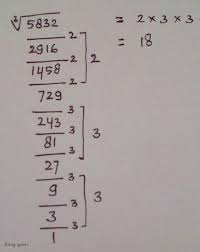 ∛5832 = 2 × 3 × 3
2916 2 = 18
1458 2 2
729 2
243 3
81 3 3
27 3
9 3
3 3 3
1 3